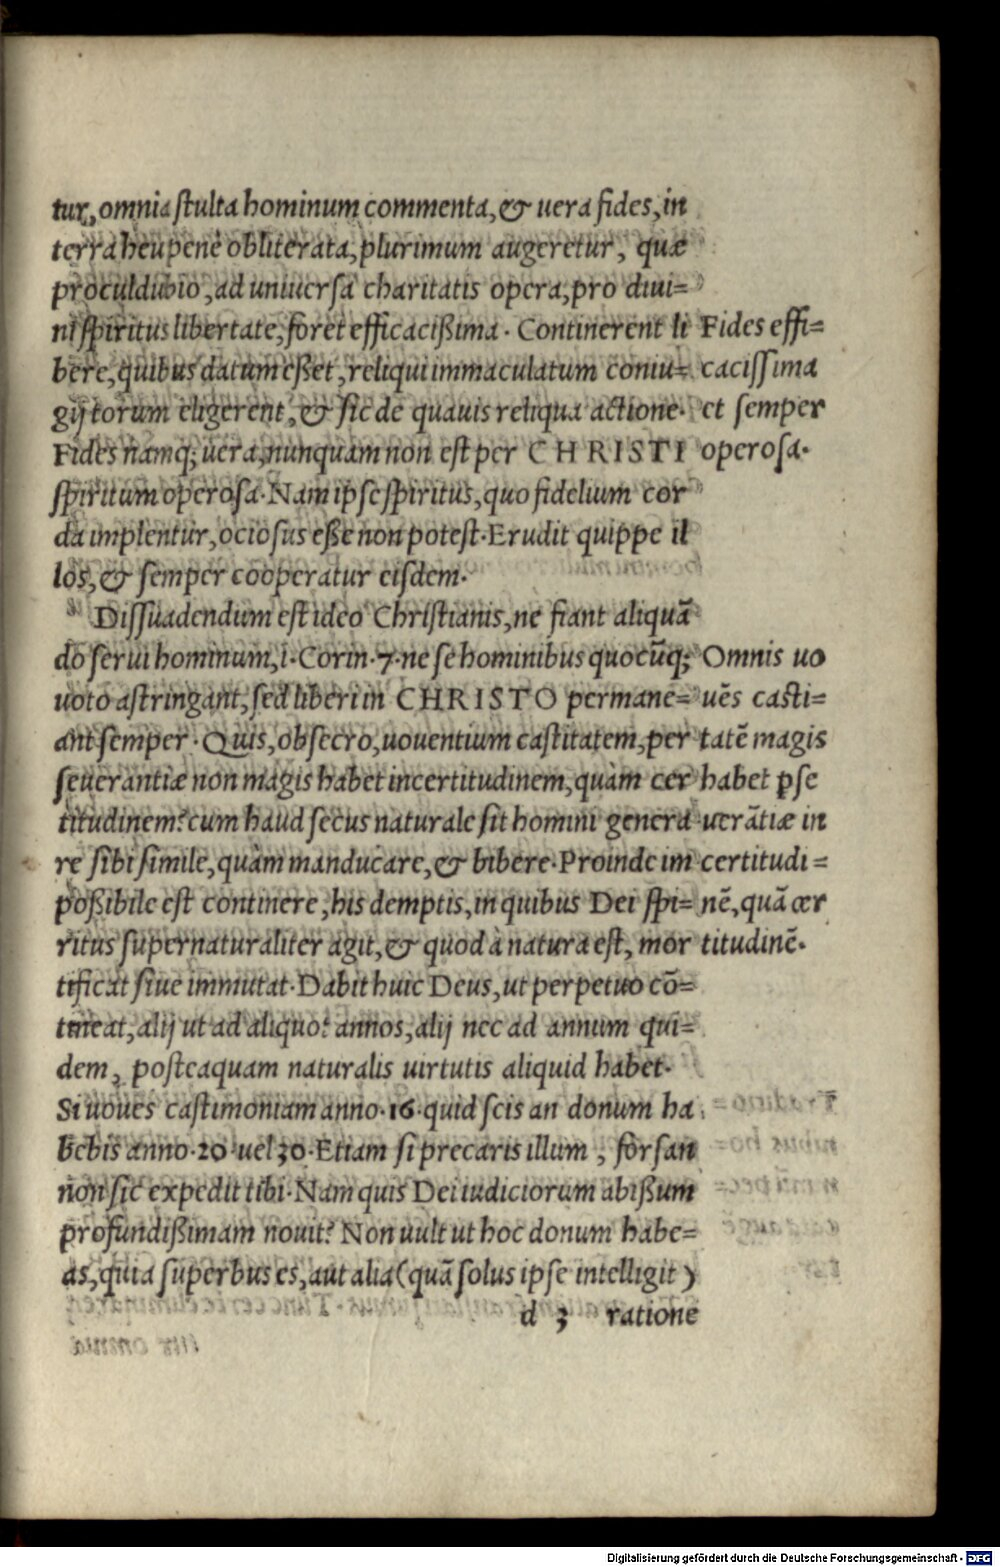 tur, omnia stulta hominum commenta, & uera fides, in
terra heu penè obliterata, plurimum augeretur, quæ
proculdubio, ad uniuersa charitatis opera, pro diui=
ni spiritus libertate, foret efficacißima. Continerent li
bere, quibus datum eßet, reliqui immaculatum coniu=
gij torum eligerent, & sic de quauis reliqua actione.
Fides namq; uera, nunquam non est per CHRISTI
spiritum operosa. Nam ipse spiritus, quo fidelium cor
da implentur, ociosus eße non potest. Erudit quippe il
los, & semper cooperatur eisdem.
Dissuadendum est ideo Christianis, ne fiant aliquā
do serui hominum, 1. Corin. 7. ne se hominibus quocūq;
uoto astringant, sed liberi in CHRISTO permane=
ant semper. Quis, obsecro, uouentium castitatem, per
seuerantiæ non magis habet incertitudinem, quàm cer
titudinem? cum haud secus naturale sit homini genera
re sibi simile, quàm manducare, & bibere. Proinde im
poßibile est continere, his demptis, in quibus Dei spi=
ritus supernaturaliter agit, & quod à natura est, mor
tificat siue immutat. Dabit huic Deus, ut perpetuo cō=
tineat, alij ut ad aliquot annos, alij nec ad annum qui=
dem, posteaquam naturalis uirtutis aliquid habet.
Si uoues castimoniam anno. 16. quid scis an donum ha
bebis anno. 20. uel 30. Etiam si precaris illum, forsan
non sic expedit tibi. Nam quis Dei iudiciorum abißum
profundißimam nouit? Non uult ut hoc donum habe=
as, quia superbus es, aut alia (quā solus ipse intelligit)
d 3 ratione
Fides effi=
cacissima
et semper
operosa.
Omnis uo
uēs casti=
tatē magis
habet pse
uerātiæ in
certitudi=
nē, quā cer
titudinē.
Digitalisierung gefördert durch die Deutsche Forschungsgemeinschaft - DFG